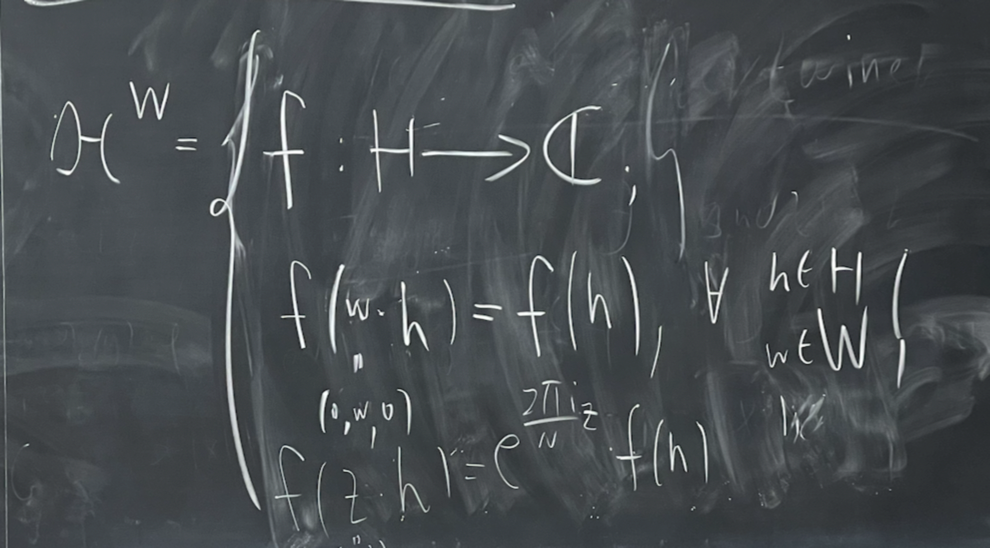 ℋ^W = { f : H ⟶ ℂ ;
f(w·h) = f(h), ∀ h∈H
w∈W
(0,w,0)
f(z·h) = e^{\frac{2πi}{N}z} · f(h)